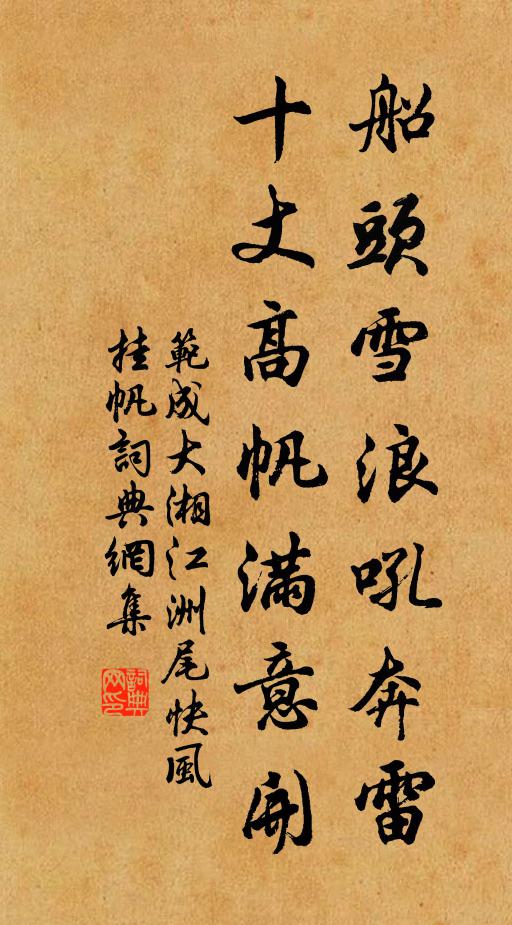 船頭雪浪吼奔雷
十丈高帆滿意開
範成大湘江洲尾快風
挂帆詞典網集
詞典網印